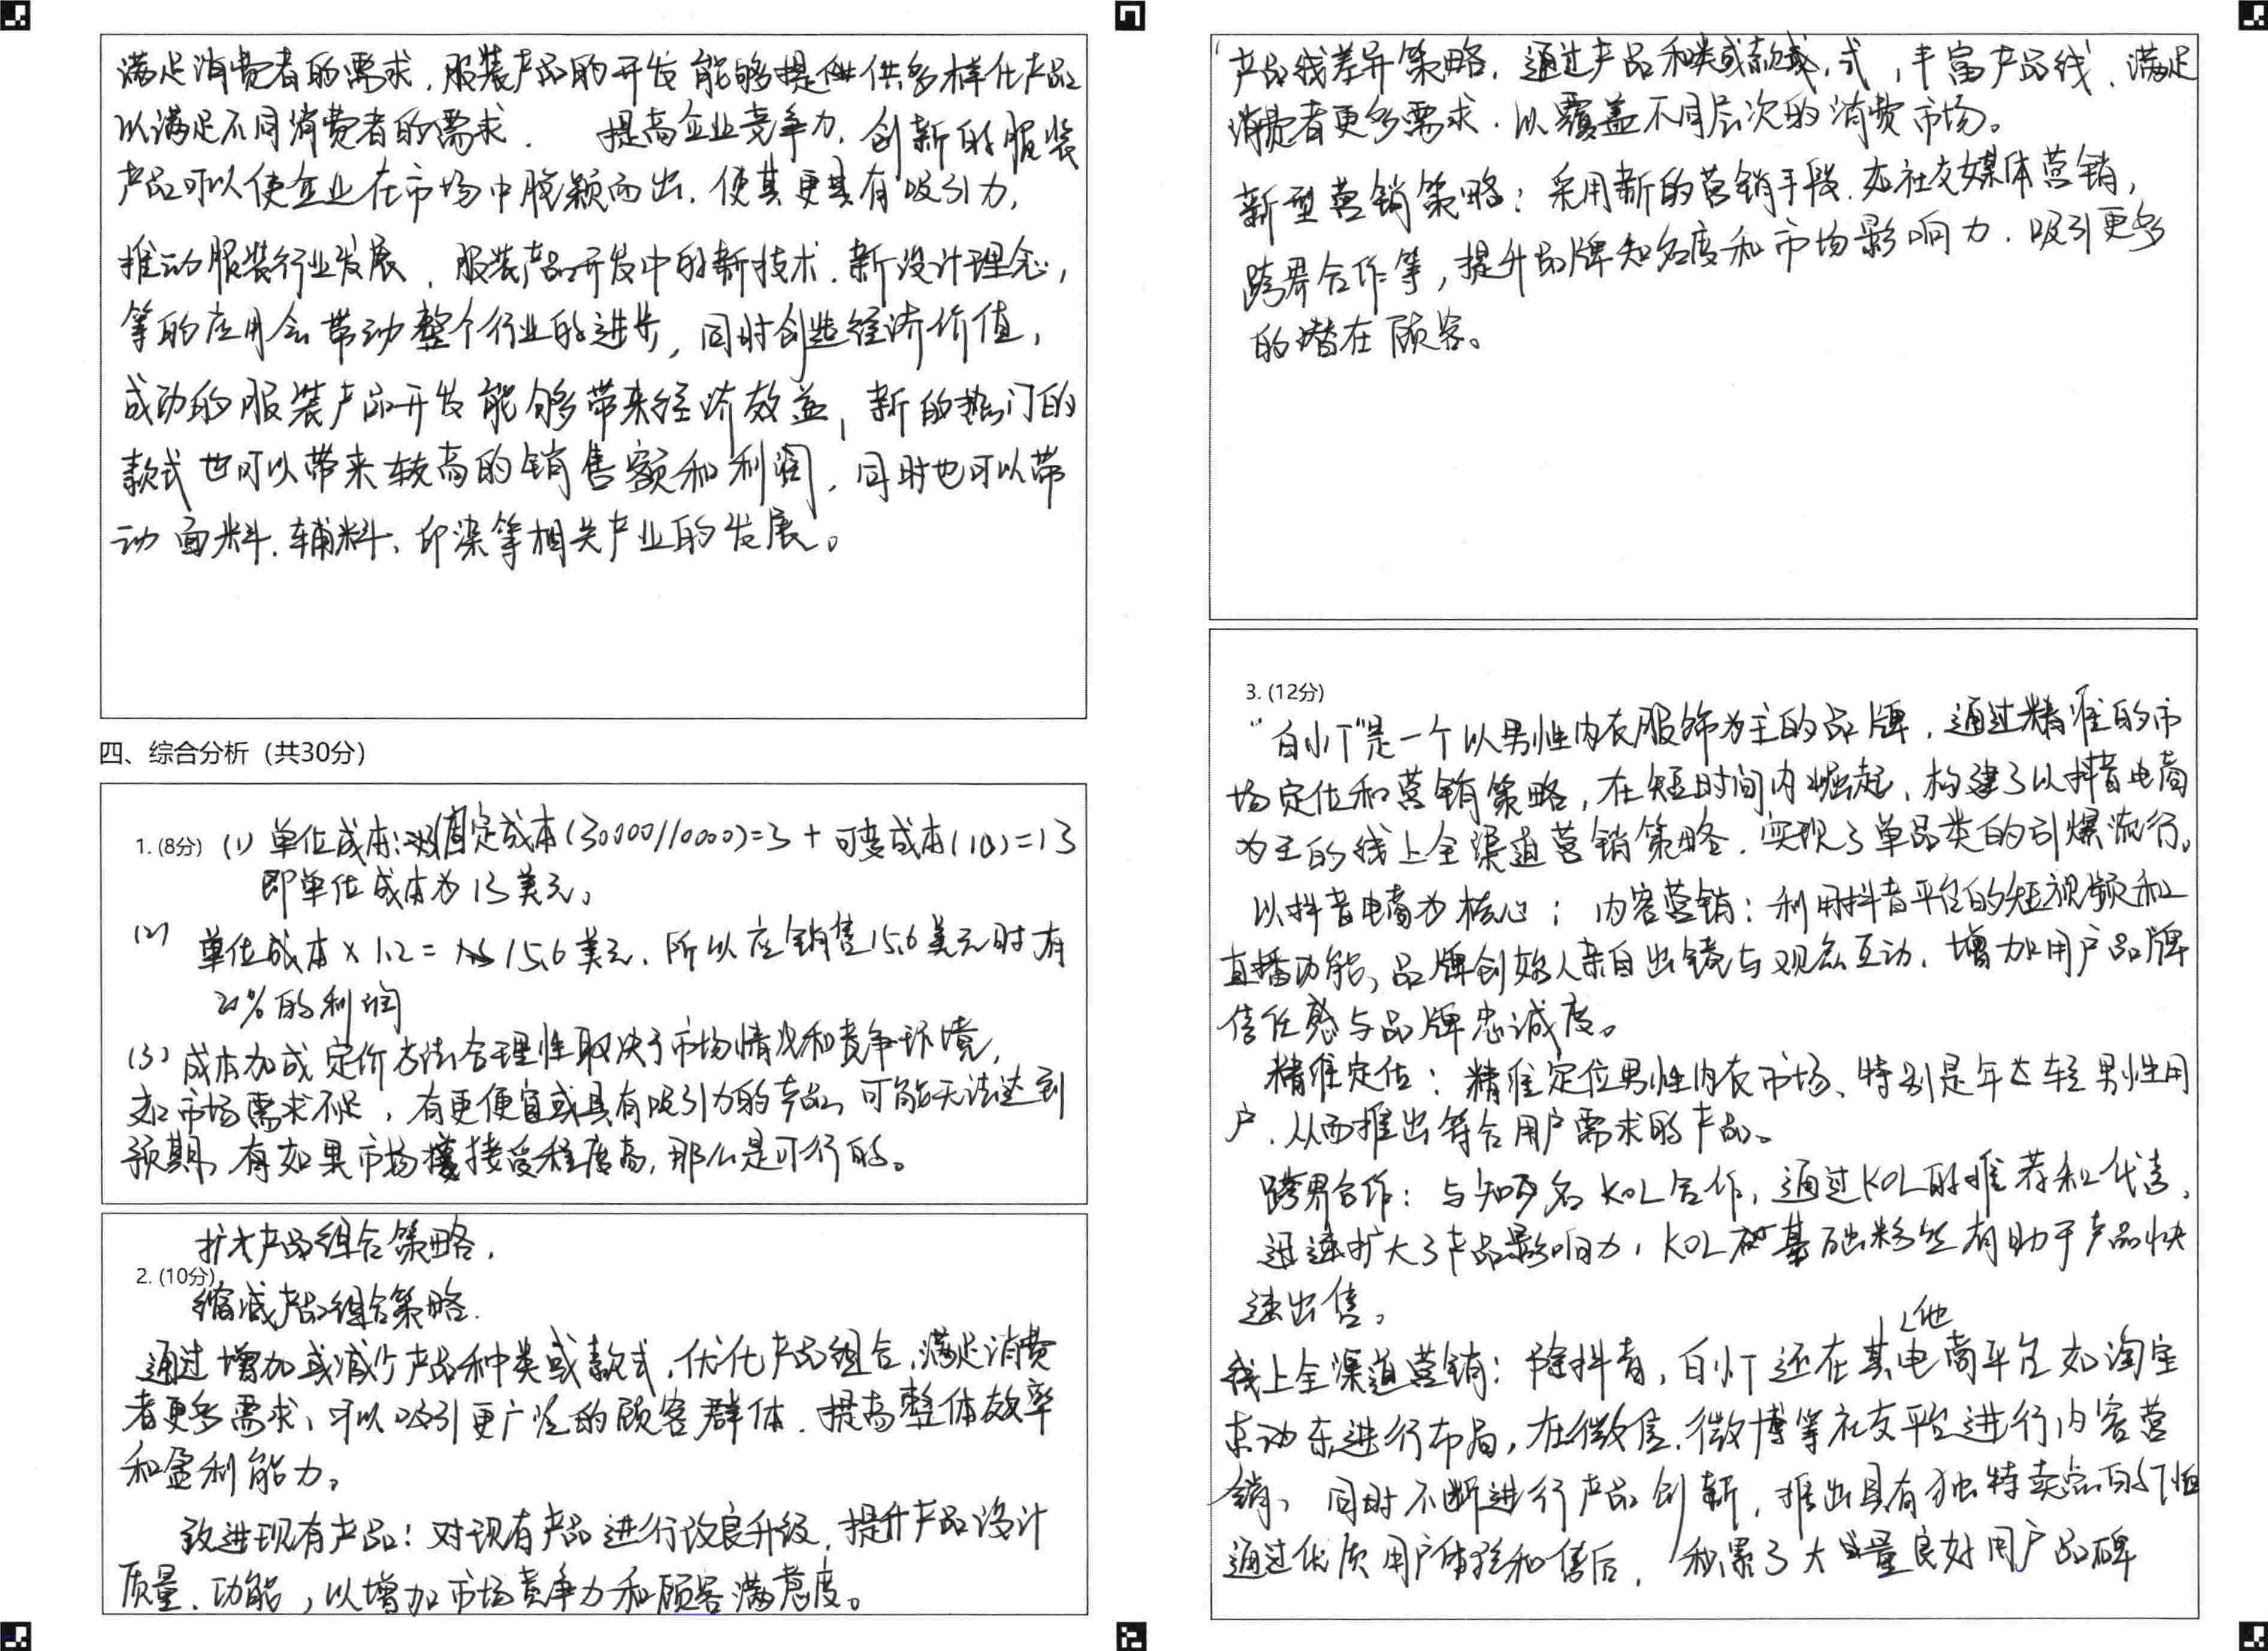 满足消费者的需求，服装产品的开发能够提供多样化产品
以满足不同消费者的需求． 提高企业竞争力，创新的服装
产品可以使企业在市场中脱颖而出，使其更具有吸引力，
推动服装行业发展，服装产品开发中的新技术、新设计理念，
等的应用会带动整个行业的进步，同时创造经济价值，
成功的服装产品开发能够带来经济效益，新的热门的
款式也可以带来较高的销售额和利润，同时也可以带
动面料、辅料、印染等相关产业的发展。
四、综合分析（共30分）
1. (8分) (1) 单位成本：固定成本(30000/10000)=3 + 可变成本(10)=13
即单位成本为13美元。
(2) 单位成本×1.2= 15.6美元，所以应销售15.6美元时有
20%的利润
(3) 成本加成定价方法合理性取决于市场情况和竞争环境，
如市场需求不足，有更便宜或具有吸引力的产品，可能无法达到
预期，有如果市场接受程度高，那么是可行的。
扩大产品组合策略，
2. (10分)
缩减产品组合策略．
通过增加或减少产品种类或款式，优化产品组合，满足消费
者更多需求，可以吸引更广泛的顾客群体，提高整体效率
和盈利能力。
改进现有产品：对现有产品进行改良升级，提升产品设计
质量、功能，以增加市场竞争力和顾客满意度。
产品线差异策略，通过产品种类或款式，丰富产品线，满足
消费者更多需求，以覆盖不同层次的消费市场。
新型营销策略：采用新的营销手段，如社交媒体营销，
跨界合作等，提升品牌知名度和市场影响力，吸引更多
的潜在顾客。
3. (12分)
“白小T”是一个以男性内衣服饰为主的品牌，通过精准的市
场定位和营销策略，在短时间内崛起，构建了以抖音电商
为主的线上全渠道营销策略，实现了单品类的引爆流行。
以抖音电商为核心；内容营销：利用抖音平台的短视频和
直播功能，品牌创始人亲自出镜与观众互动，增加用户品牌
信任感与品牌忠诚度。
精准定位：精准定位男性内衣市场、特别是年轻男性用
户，从而推出符合用户需求的产品。
跨界合作：与知名KOL合作，通过KOL的推荐和代言，
迅速扩大了产品影响力，KOL基础粉丝有助于产品快
速出售。
线上全渠道营销：除抖音，白小T还在其他电商平台如淘宝
京东进行布局，在微信、微博等社交平台进行内容营
销，同时不断进行产品创新，推出具有独特卖点白小T恤
通过优质用户体验和售后，积累了大量良好用户品碑